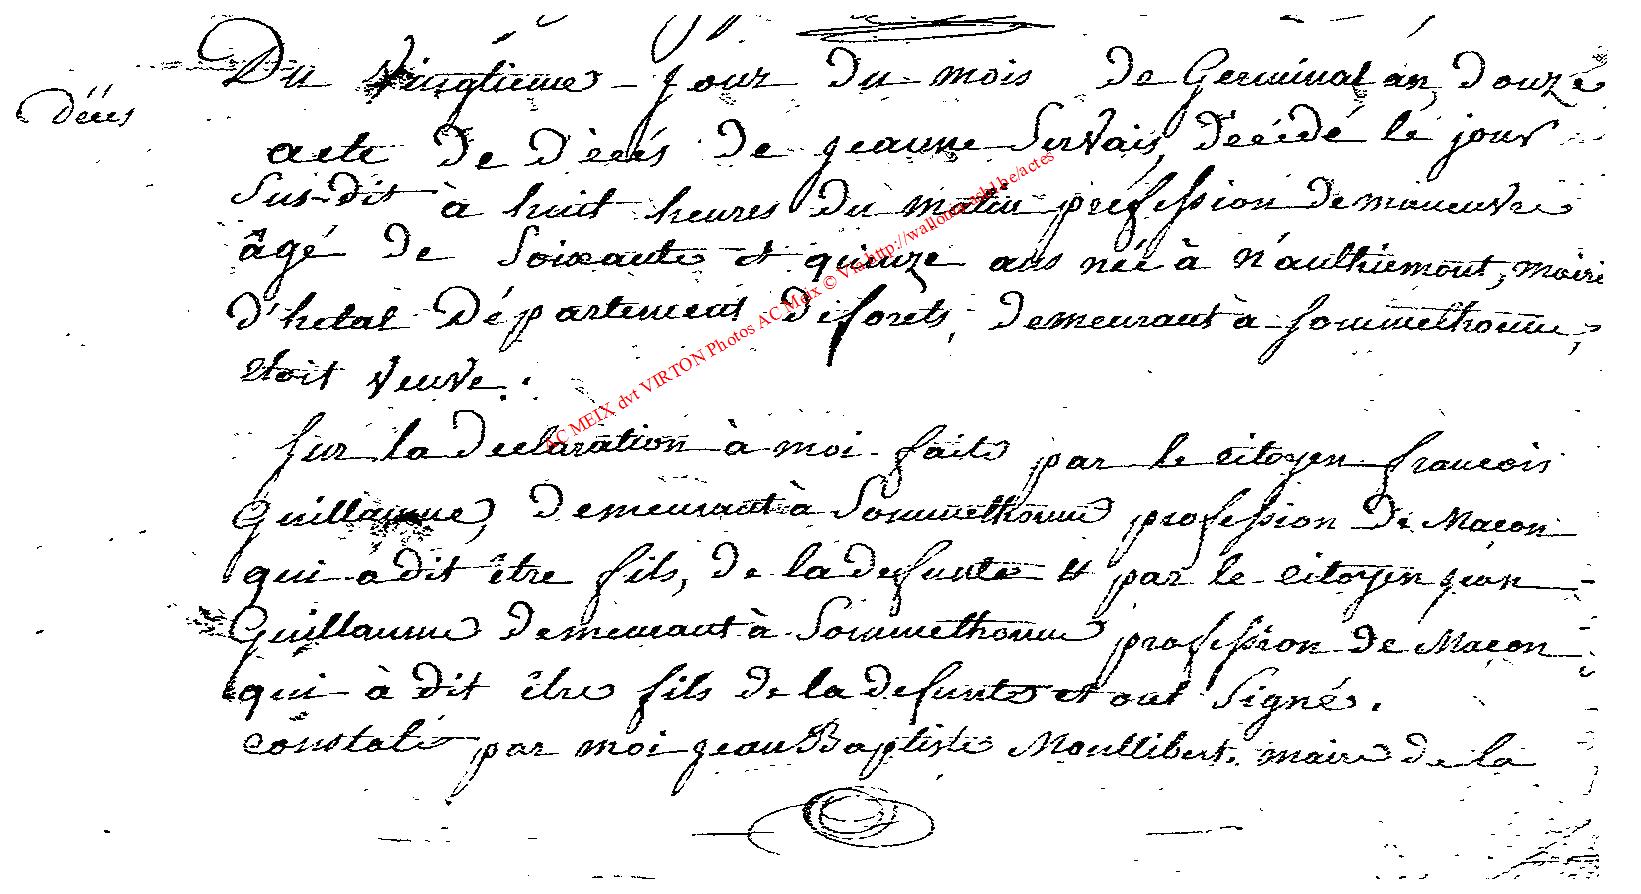 Du Vingtieme jour du mois de Germinal an, douze
décès
acte de décés de jeanne Servais, décédé le jour
Sus-dit à huit heures du matin proféssion de maneuvre
âgé de Soixante et quinze ans née à n'authiemont, mairie
d'hetal Département de forets, demeurant à Sommethonne,
etoit veuve.
Sur la declaration à moi faite par le citoyen françois
Guillaume, demeurant à Sommethonne profession de Maçon
qui a dit être fils, de la defunte et par le citoyen jean
Guillaume demeurant à Sommethonne profession de Maçon
qui à dit être fils de la defunte et ont Signé.
constaté par moi jean Baptiste Moullibert. maire de la
AC MEIX dvt VIRTON Photos AC Meix © Via http://wallonia-asbl.be/actes